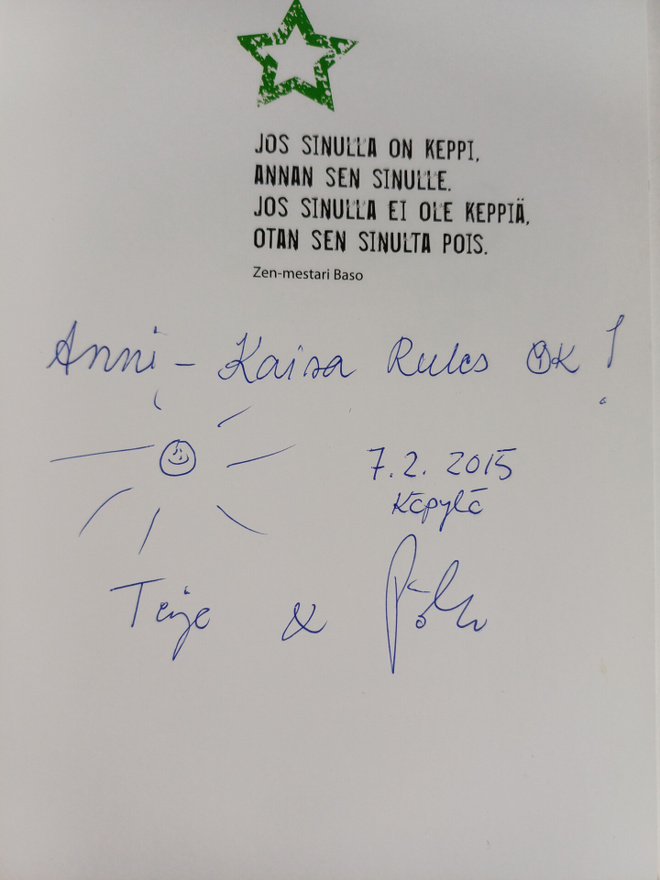 JOS SINULLA ON KEPPI,
ANNAN SEN SINULLE.
JOS SINULLA EI OLE KEPPIÄ,
OTAN SEN SINULTA POIS.
Zen-mestari Baso
Anni-Kaisa Rules OK!
7.2. 2015
Käpylä
Teije &